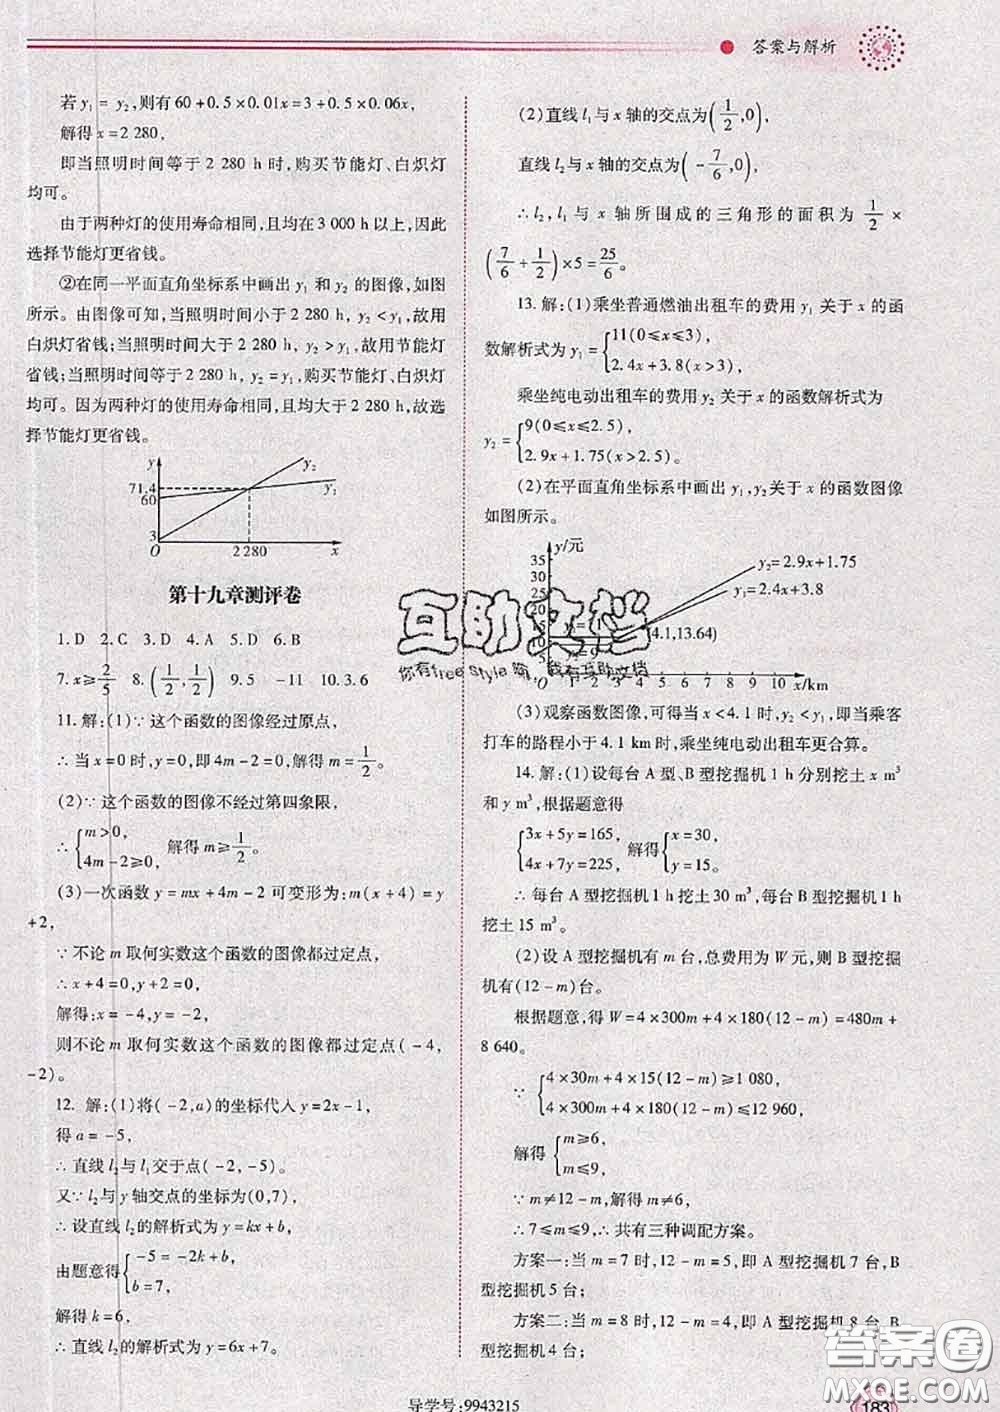 答案与解析
若 y₁ = y₂,则有 60+0.5×0.01x=3+0.5×0.06x,
解得 x=2 280,
即当照明时间等于 2 280 h 时,购买节能灯、白炽灯
均可。
由于两种灯的使用寿命相同,且均在 3 000 h 以上,因此
选择节能灯更省钱。
②在同一平面直角坐标系中画出 y₁ 和 y₂ 的图像,如图
所示。由图像可知,当照明时间小于 2 280 h 时, y₂<y₁,故用
白炽灯省钱;当照明时间大于 2 280 h, y₂>y₁,故用节能灯
省钱;当照明时间等于 2 280 h, y₂=y₁,购买节能灯、白炽灯
均可。因为两种灯的使用寿命相同,且均大于 2 280 h,故选
择节能灯更省钱。
y
y₂
71.4
y₁
60
3
O 2 280 x
第十九章测评卷
1.D 2.C 3.D 4.A 5.D 6.B
7.x≥2/5 8.(1/2,1/2) 9.5 -11 10.3.6
11.解:(1)∵这个函数的图像经过原点,
∴当 x=0 时,y=0,即 4m-2=0,解得 m=1/2。
(2)∵这个函数的图像不经过第四象限,
∴{m>0, 4m-2≥0, 解得 m≥1/2。
(3)一次函数 y=mx+4m-2 可变形为:m(x+4)=y
+2,
∵不论 m 取何实数这个函数的图像都过定点,
∴x+4=0,y+2=0,
解得:x=-4,y=-2,
则不论 m 取何实数这个函数的图像都过定点(-4,
-2)。
12. 解:(1)将(-2,a)的坐标代入 y=2x-1,
得 a=-5,
∴直线 l₂与 l₁交于点(-2,-5)。
又∵l₂与 y 轴交点的坐标为(0,7),
∴设直线 l₂的解析式为 y=kx+b,
由题意得{-5=-2k+b, b=7,
解得 k=6,
∴直线 l₂的解析式为 y=6x+7。
(2)直线 l₁与 x 轴的交点为(1/2,0),
直线 l₂与 x 轴的交点为(-7/6,0),
∴l₂,l₁ 与 x 轴所围成的三角形的面积为 1/2 ×
(7/6+1/2)×5=25/6。
13.解:(1)乘坐普通燃油出租车的费用 y₁ 关于 x 的函
数解析式为 y₁={11(0≤x≤3), 2.4x+3.8(x>3),
乘坐纯电动出租车的费用 y₂ 关于 x 的函数解析式为
y₂={9(0≤x≤2.5), 2.9x+1.75(x>2.5)。
(2)在平面直角坐标系中画出 y₁,y₂关于 x 的函数图像
如图所示。
y/元
35
30
25
20
15
10
5
y₂=2.9x+1.75
y₁=2.4x+3.8
(4.1,13.64)
O 1 2 3 4 5 6 7 8 9 10 x/km
互助文档
你有free style 嘛, 我有互助文档
(3)观察函数图像,可得当 x<4.1 时,y₂<y₁,即当乘客
打车的路程小于 4.1 km时,乘坐纯电动出租车更合算。
14.解:(1)设每台 A 型、B 型挖掘机 1 h 分别挖土 x m³
和 y m³,根据题意得
{3x+5y=165, 4x+7y=225, 解得{x=30, y=15。
∴每台 A 型挖掘机 1 h 挖土 30 m³,每台 B 型挖掘机 1 h
挖土 15 m³。
(2)设 A 型挖掘机有 m 台,总费用为 W 元,则 B 型挖掘
机有(12-m)台。
根据题意,得 W=4×300m+4×180(12-m)=480m+
8 640。
∵{4×30m+4×15(12-m)≥1 080, 4×300m+4×180(12-m)≤12 960,
解得{m≥6, m≤9,
∵m≠12-m,解得 m≠6,
∴7≤m≤9,∴共有三种调配方案。
方案一:当 m=7 时,12-m=5,即 A 型挖掘机 7 台,B
型挖掘机 5 台;
方案二:当 m=8 时,12-m=4,即 A 型挖掘机 8 台,B
型挖掘机 4 台;
答案圈
MXQE.COM
183
导学号:9943215